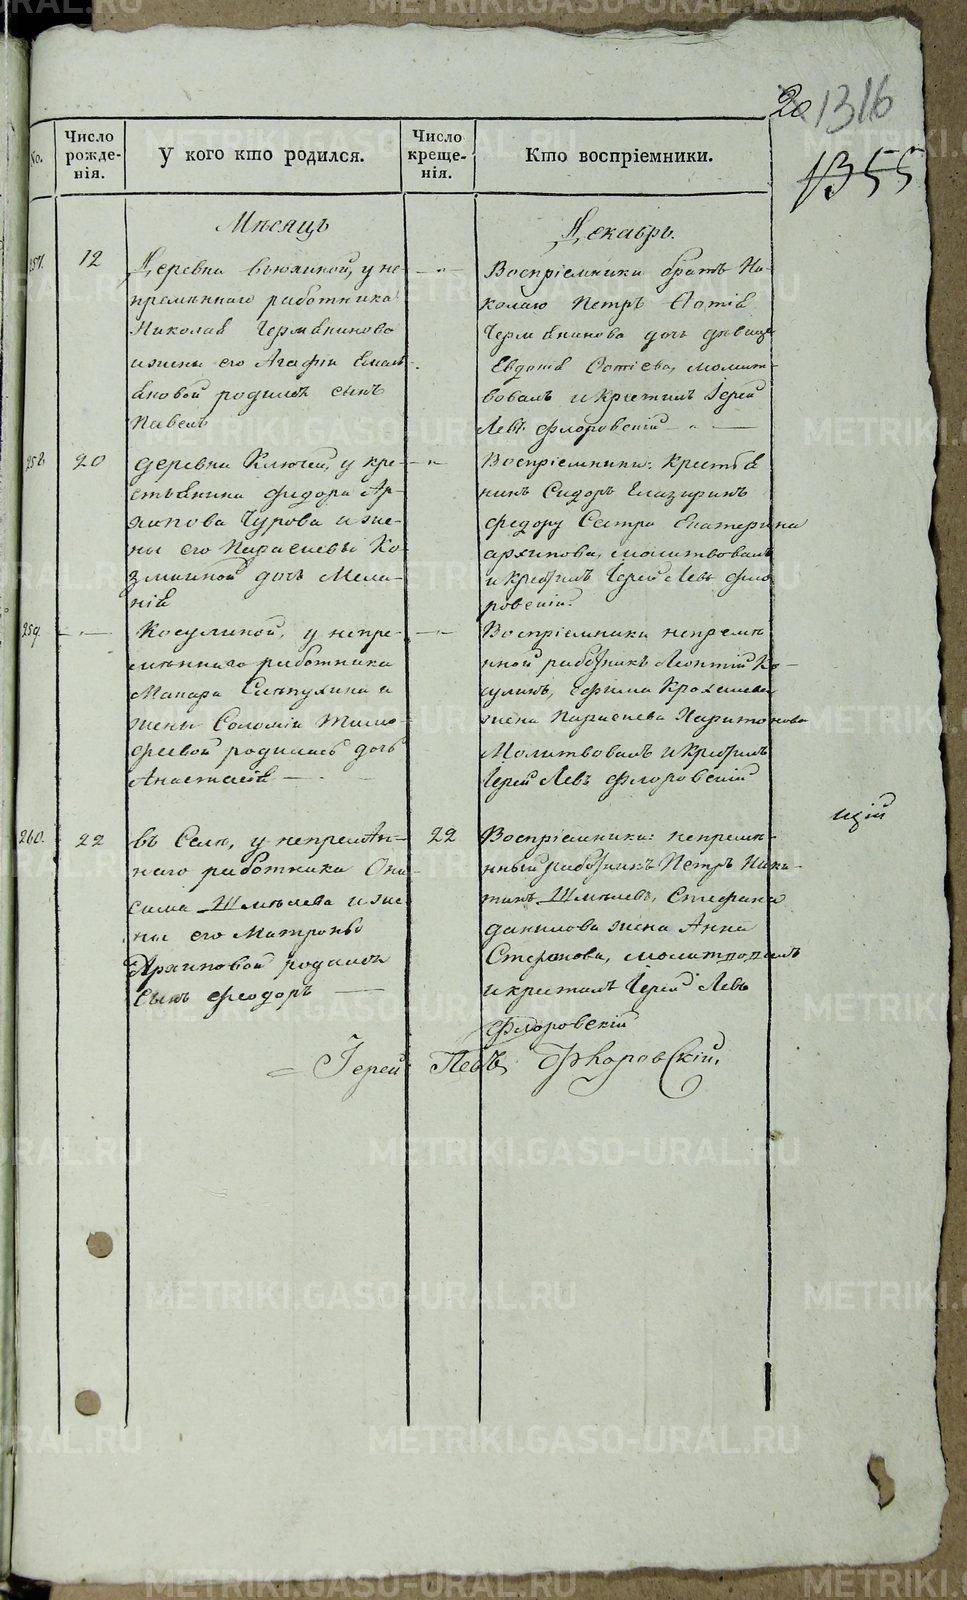 20 1316
1355
No.
Число рожде-нія.
У кого кто родился.
Число креще-нія.
Кто воспріемники.
Мѣсяцъ
Декабрь.
257.
12
Деревни Вьюхиной, у не-
премѣннаго работника
Николая
и жены его Агафіи Емель
яновой родился сынъ
Павелъ
Воспріемники братъ Ни-
колаю Петръ
дочь девица
Евдокія молит-
вовалъ и крестилъ Іерей
Левъ Флоровскій
258
20
деревни Ключей, у кре-
стьянина Федора Ар-
хипова Чурова и же-
ны его Параскевы Ко-
зминой дочь Мела-
нія
Воспріемники: крестья
нинъ Сидоръ
Федору Сестра Екатерина
Архипова, молитвовалъ
и крестилъ Іерей Левъ Фло
ровскій.
259.
Косулиной, у непре-
мѣннаго работника
Макара и
жены Соломіи Тимо
феевой родилась дочь
Анастасія
Воспріемники непремѣ
нной работникъ Леонтій Ко-
сулинъ, Ефима
жена Параскева Харитонова
Молитвовалъ и крестилъ
Іерей Левъ Флоровскій
щій
260.
22
въ Селѣ, у непремѣн-
наго работника Они-
сима Шмѣлева и же-
ны его Матроны
Архиповой родился
сынъ Феодоръ
22
Воспріемники: непремѣ-
нный работникъ Петръ Ники-
тинъ Шмѣлевъ, Стефана
Данилова жена Анна
Стефанова, молитвовалъ
и крестилъ Іерей Левъ
Флоровскій
Іерей Левъ Флоровскій.
METRIKI.GASO-URAL.RU